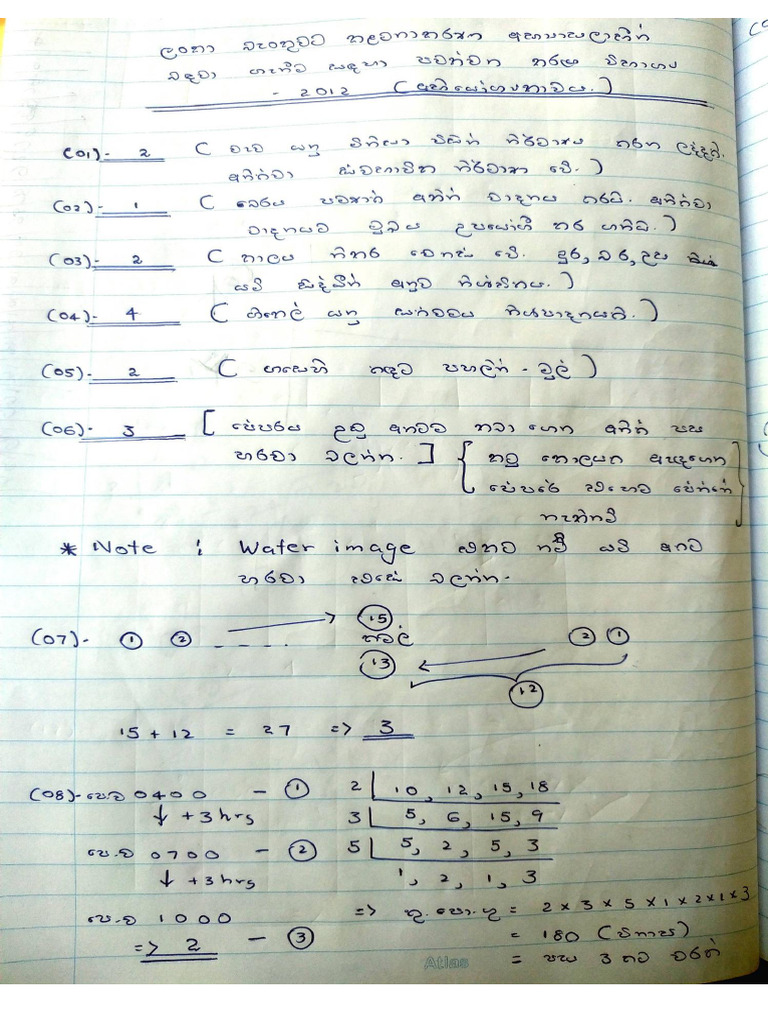 ලංකා බැංකුවට කළමනාකරණ අභ්‍යාසලාභීන්
බඳවා ගැනීම සඳහා පවත්වන තරඟ විභාගය
- 2012 (අභියෝග්‍යතාවය.)
(01)- 2 ( වැව යනු මිනිසා විසින් නිර්මාණය කරන ලද්දකි.
අනිත්වා ස්වභාවික නිර්මාණ වේ. )
(02)- 1 ( බෙරය පමණක් අතින් වාදනය කරයි. අනිත්වා
වාදනයට මුඛය උපයෝගී කර ගනියි. )
(03)- 2 ( කාලය නිතර වෙනස් වේ. දුර, බර, උස
යම් සිද්ධීන් අනුව නියතය. )
(04)- 4 ( හිතෙල් යනු සත්වමය නිෂ්පාදනයකි. )
(05)- 2 ( ගසෙහි කඳට පහලින් - මුල් )
(06)- 3 [ පේපරය උඩු අතට තබා ගෙන අනිත් පස
හරවා බලන්න. ] { තමු කොලයක අඳගෙන
පේපරේ එහෙම පේන්නේ
නැත්නම් }
* Note : Water image එකට නම් යටි අතට
හරවා එසේ බලන්න.
(07)- 1 2 - - - - . 15 කමල් 2 1
13
12
15 + 12 = 27 => 3
(08)- පෙ.ව 0400 - 1 2 | 10, 12, 15, 18
↓ +3 hrs 3 | 5, 6, 15, 9
පෙ.ව 0700 - 2 5 | 5, 2, 5, 3
↓ +3 hrs 1, 2, 1, 3
පෙ.ව 1000 => කු.පො.ගු = 2 x 3 x 5 x 1 x 2 x 1 x 3
=> 2 - 3 = 180 (විනාඩි)
= පැය 3 කට වරක්
Atlas